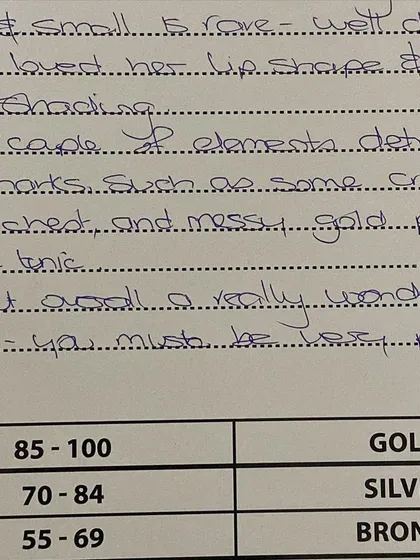 & small is rare - well d
loved her lip shape &
Shading.
cauple of elements det
marks. Such as some cr
chest, and messy gold
tunic.
t overall a really wond
- you must be very
85 - 100 GOL
70 - 84 SILV
55 - 69 BRON